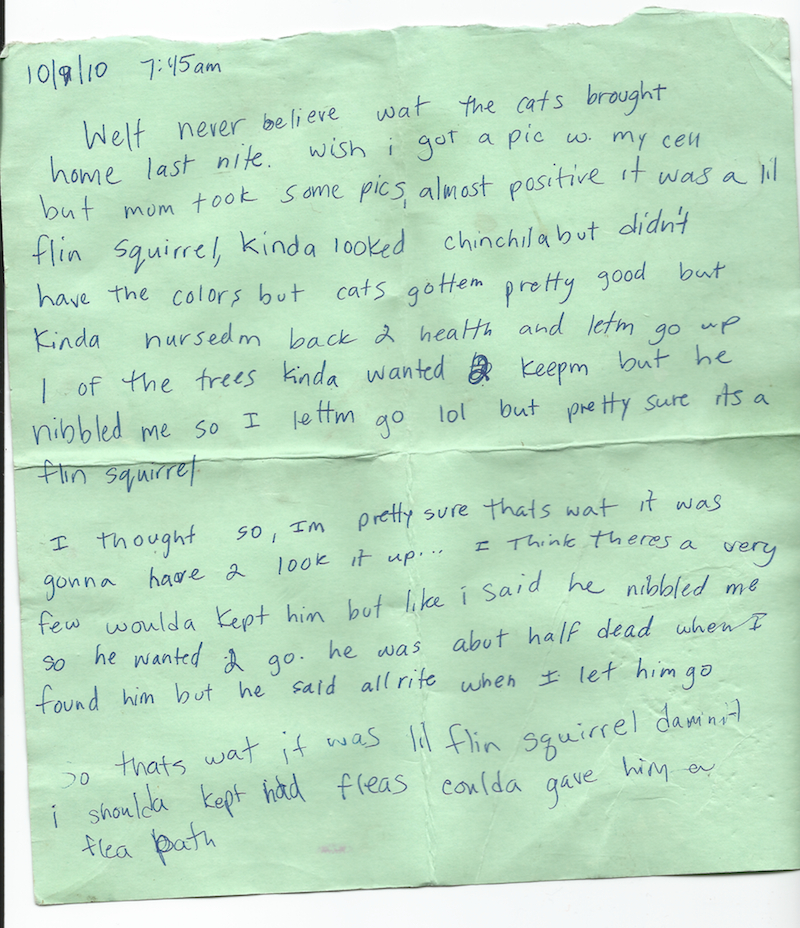 10/9/10 7:45am
Welt never believe wat the cats brought
home last nite. wish i got a pic w. my cell
but mom took some pics, almost positive it was a lil
flin squirrel, kinda looked chinchila but didn't
have the colors but cats gottem pretty good but
kinda nursedm back 2 health and letm go up
1 of the trees kinda wanted 2 keepm but he
nibbled me so I lettm go lol but pretty sure its a
flin squirrel
I thought so, Im pretty sure thats wat it was
gonna have 2 look it up... I think theres a very
few woulda kept him but like i said he nibbled me
so he wanted 2 go. he was abut half dead when I
found him but he said allrite when I let him go
so thats wat it was lil flin squirrel damnit
i shoulda kept had fleas coulda gave him a
flea bath